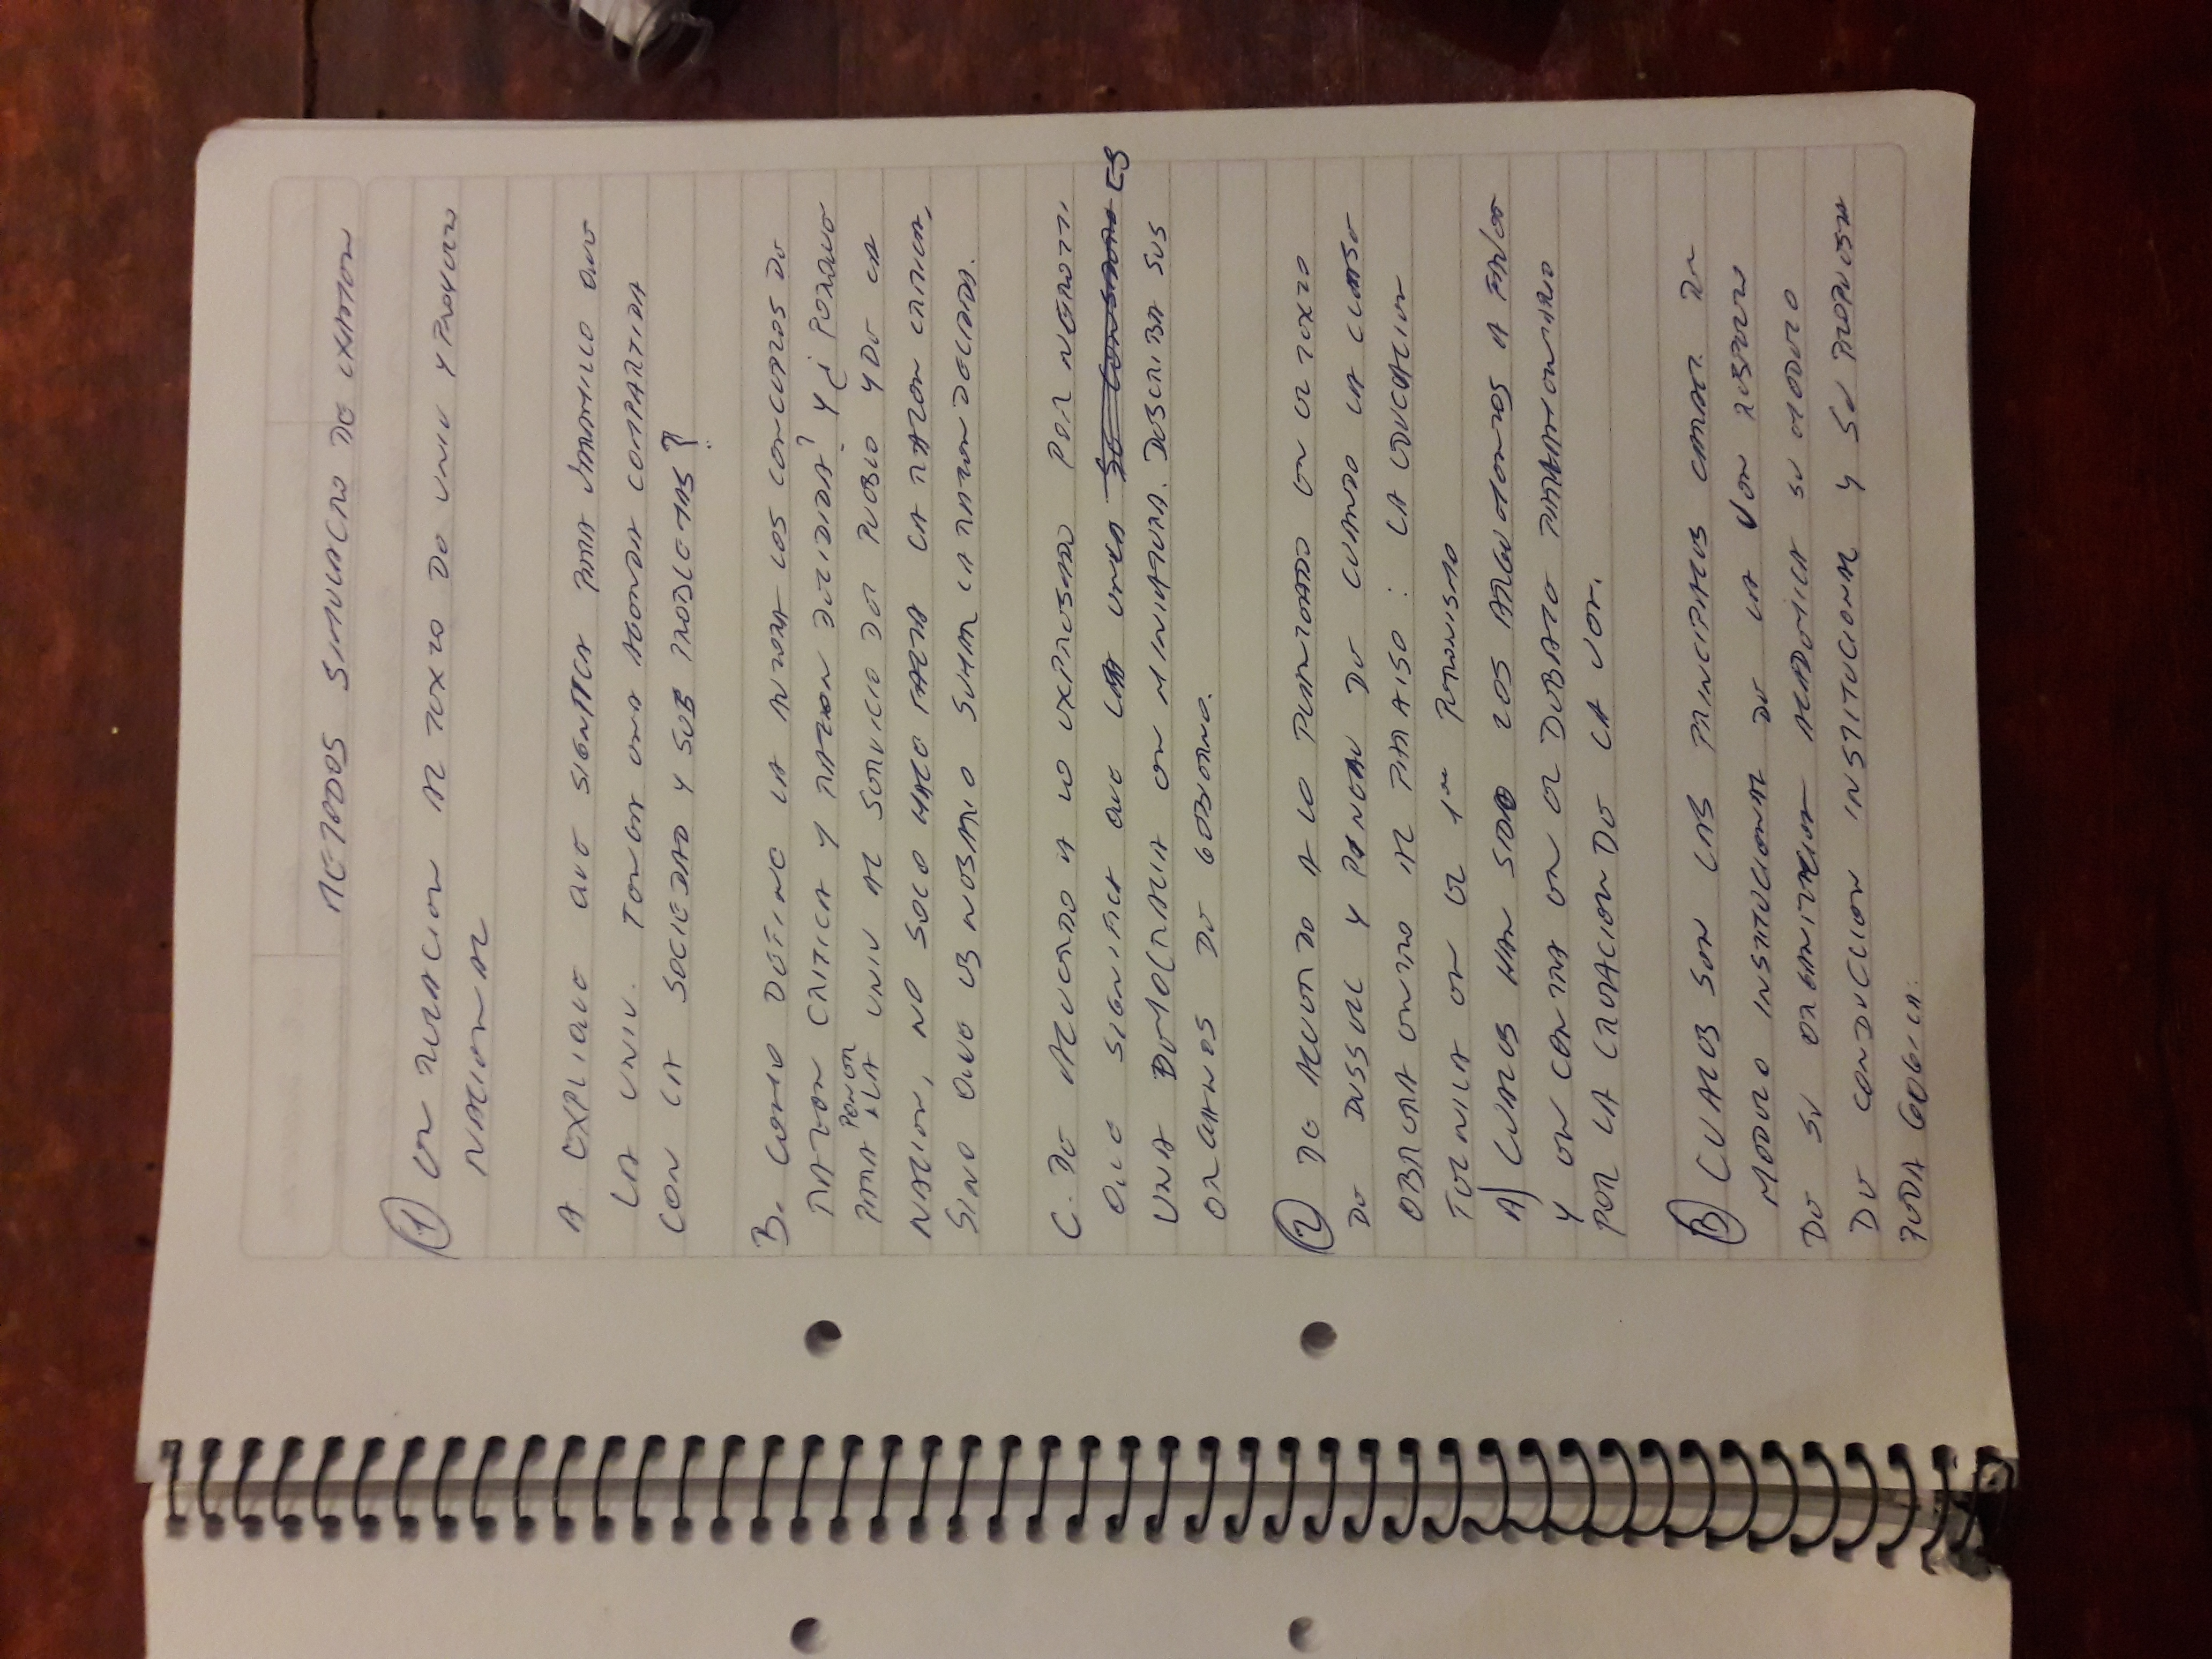 METODOS SIMULACRO DE EXAMEN
1 EN RELACION AL TEXTO DE UNIV Y PROYECTO
NACIONAL
A EXPLIQUE QUE SIGNIFICA PARA JARAMILLO QUE
LA UNIV. TENGA UNA AGENDA COMPARTIDA
CON LA SOCIEDAD Y SUS PROBLEMAS?
B. COMO DEFINE LA AUTORA LOS CONCEPTOS DE
RAZON CRITICA Y RAZON DECIDIDA? Y ¿ PORQUE
PARA PONER LA UNIV AL SERVICIO DEL PUEBLO Y DE LA
NACION, NO SOLO HACE FALTA LA RAZON CRITICA,
SINO QUE ES NESARIO SUMAR LA RAZON DECIDIDA.
C. DE ACUERDO A LO EXPRESADO POR NEGROTTI
QUE SIGNIFICA QUE LA UNLA ES
UNA DEMOCRACIA EN MINIATURA. DESCRIBA SUS
ORGANOS DE GOBIERNO.
2 DE ACUERDO A LO PLANTEADO EN EL TEXTO
DE DUSSELL Y PINEAU DE CUANDO LA CLASE
OBRERA ENTRO AL PARAISO : LA EDUCACION
TECNICA EN EL 1er PERONISMO
A) CUALES HAN SIDO LOS ARGUMENTOS A FAVOR
Y EN CONTRA EN EL DEBATE PARLAMENTARIO
POR LA CREACION DE LA UON.
B CUALES SON LAS PRINCIPALES CARACT. DEL
MODELO INSTITUCIONAL DE LA UON RESPECTO
DE SU ORGANIZACION ACADEMICA SU MODELO
DE CONDUCCION INSTITUCIONAL Y SU PROPUESTA
PEDAGOGICA.